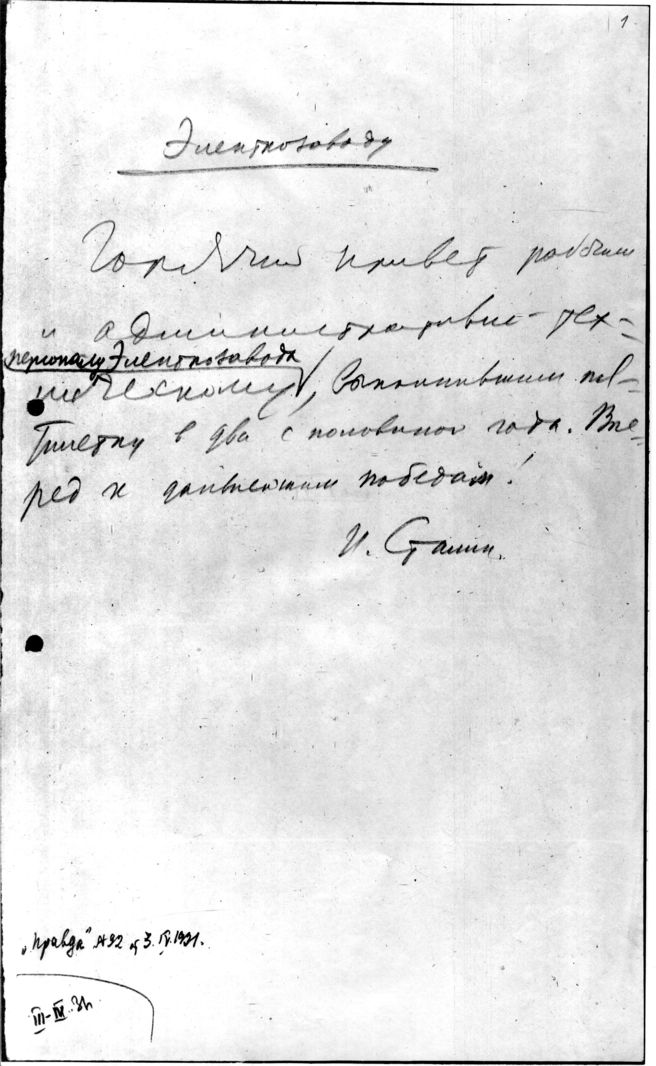 1
Электрозаводу
Горячий привет рабочим
и административно-тех-
персоналу Электрозавода
ническому, выполнившим пя-
тилетку в два с половиной года. Впе-
ред к дальнейшим победам!
И. Сталин.
"Правда" №92 от 3.IV.1931.
III-IV.31.